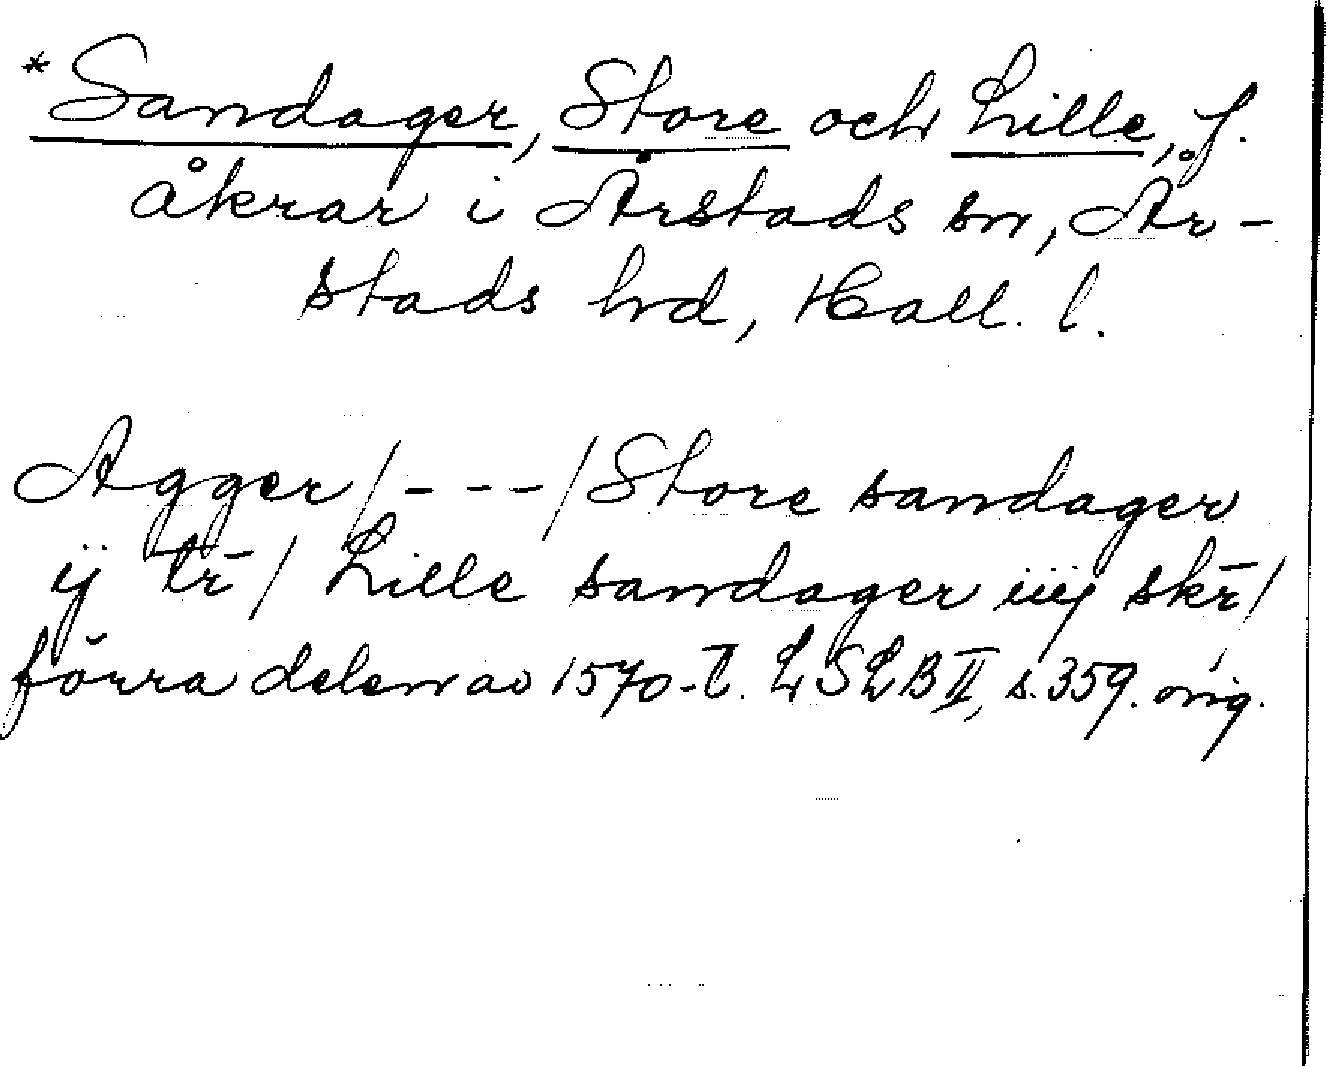 *Sandager, Store och Lille, f.
åkrar i Årstads sn, År-
stads hd, Hall. l.
Agger/- - -/Store sandager
ij tr̄/ Lille sandager iiij skr̄/
förra delen av 1570-t. LSLB II, s. 359. orig.